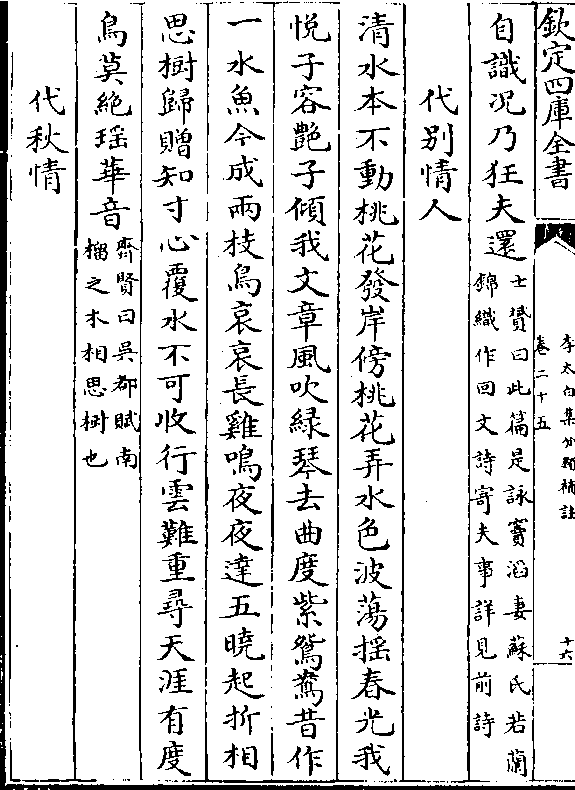 欽定四庫全書
李太白集分類補註
卷二十五
十六
自識况乃狂夫還
士贇曰此篇是詠竇滔妻蘇氏若蘭
錦織作回文詩寄夫事詳見前詩
代别情人
清水本不動桃花發岸傍桃花弄水色波蕩揺春光我
悦子容艶子傾我文章風吹緑琴去曲度紫鴛鴦昔作
一水魚今成兩枝鳥哀哀長雞鳴夜夜達五曉起折相
思樹歸贈知寸心覆水不可收行雲難重尋天涯有度
鳥莫絶瑶華音
齊賢曰吳都賦南
榴之木相思樹也
代秋情